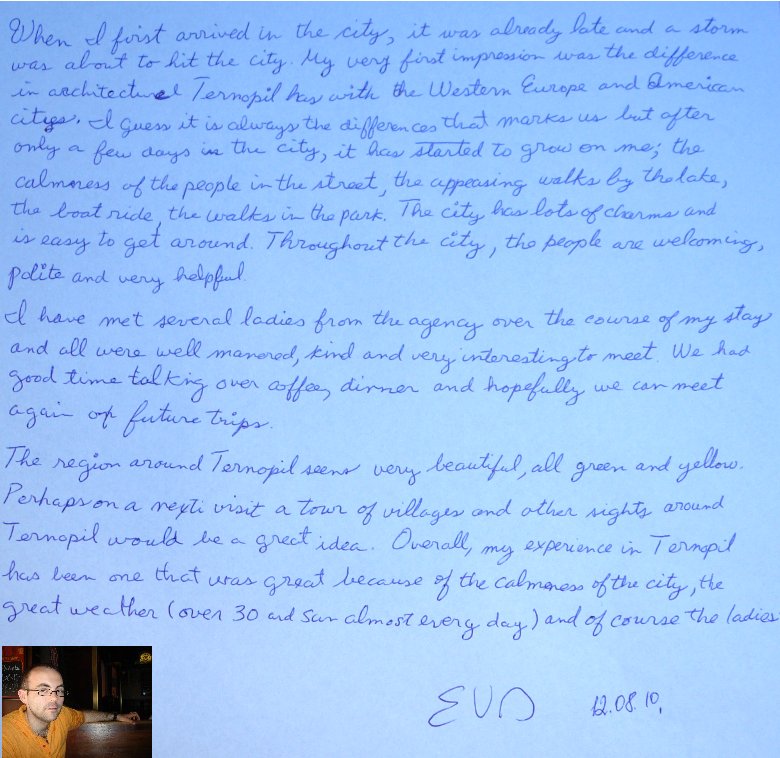 When I first arrived in the city, it was already late and a storm
was about to hit the city. My very first impression was the difference
in architectural Ternopil has with the Western Europe and American
cities. I guess it is always the differences that marks us but after
only a few days in the city, it has started to grow on me; the
calmness of the people in the street, the appeasing walks by the lake,
the boat ride, the walks in the park. The city has lots of charms and
is easy to get around. Throughout the city, the people are welcoming,
polite and very helpful.
I have met several ladies from the agency over the course of my stay
and all were well manered, kind and very interesting to meet. We had
good time talking over coffee, dinner and hopefully we can meet
again of future trips.
The region around Ternopil seems very beautiful, all green and yellow.
Perhaps on a next visit a tour of villages and other sights around
Ternopil would be a great idea. Overall, my experience in Ternopil
has been one that was great because of the calmness of the city, the
great weather (over 30 and sun almost every day) and of course the ladies
12.08.10.